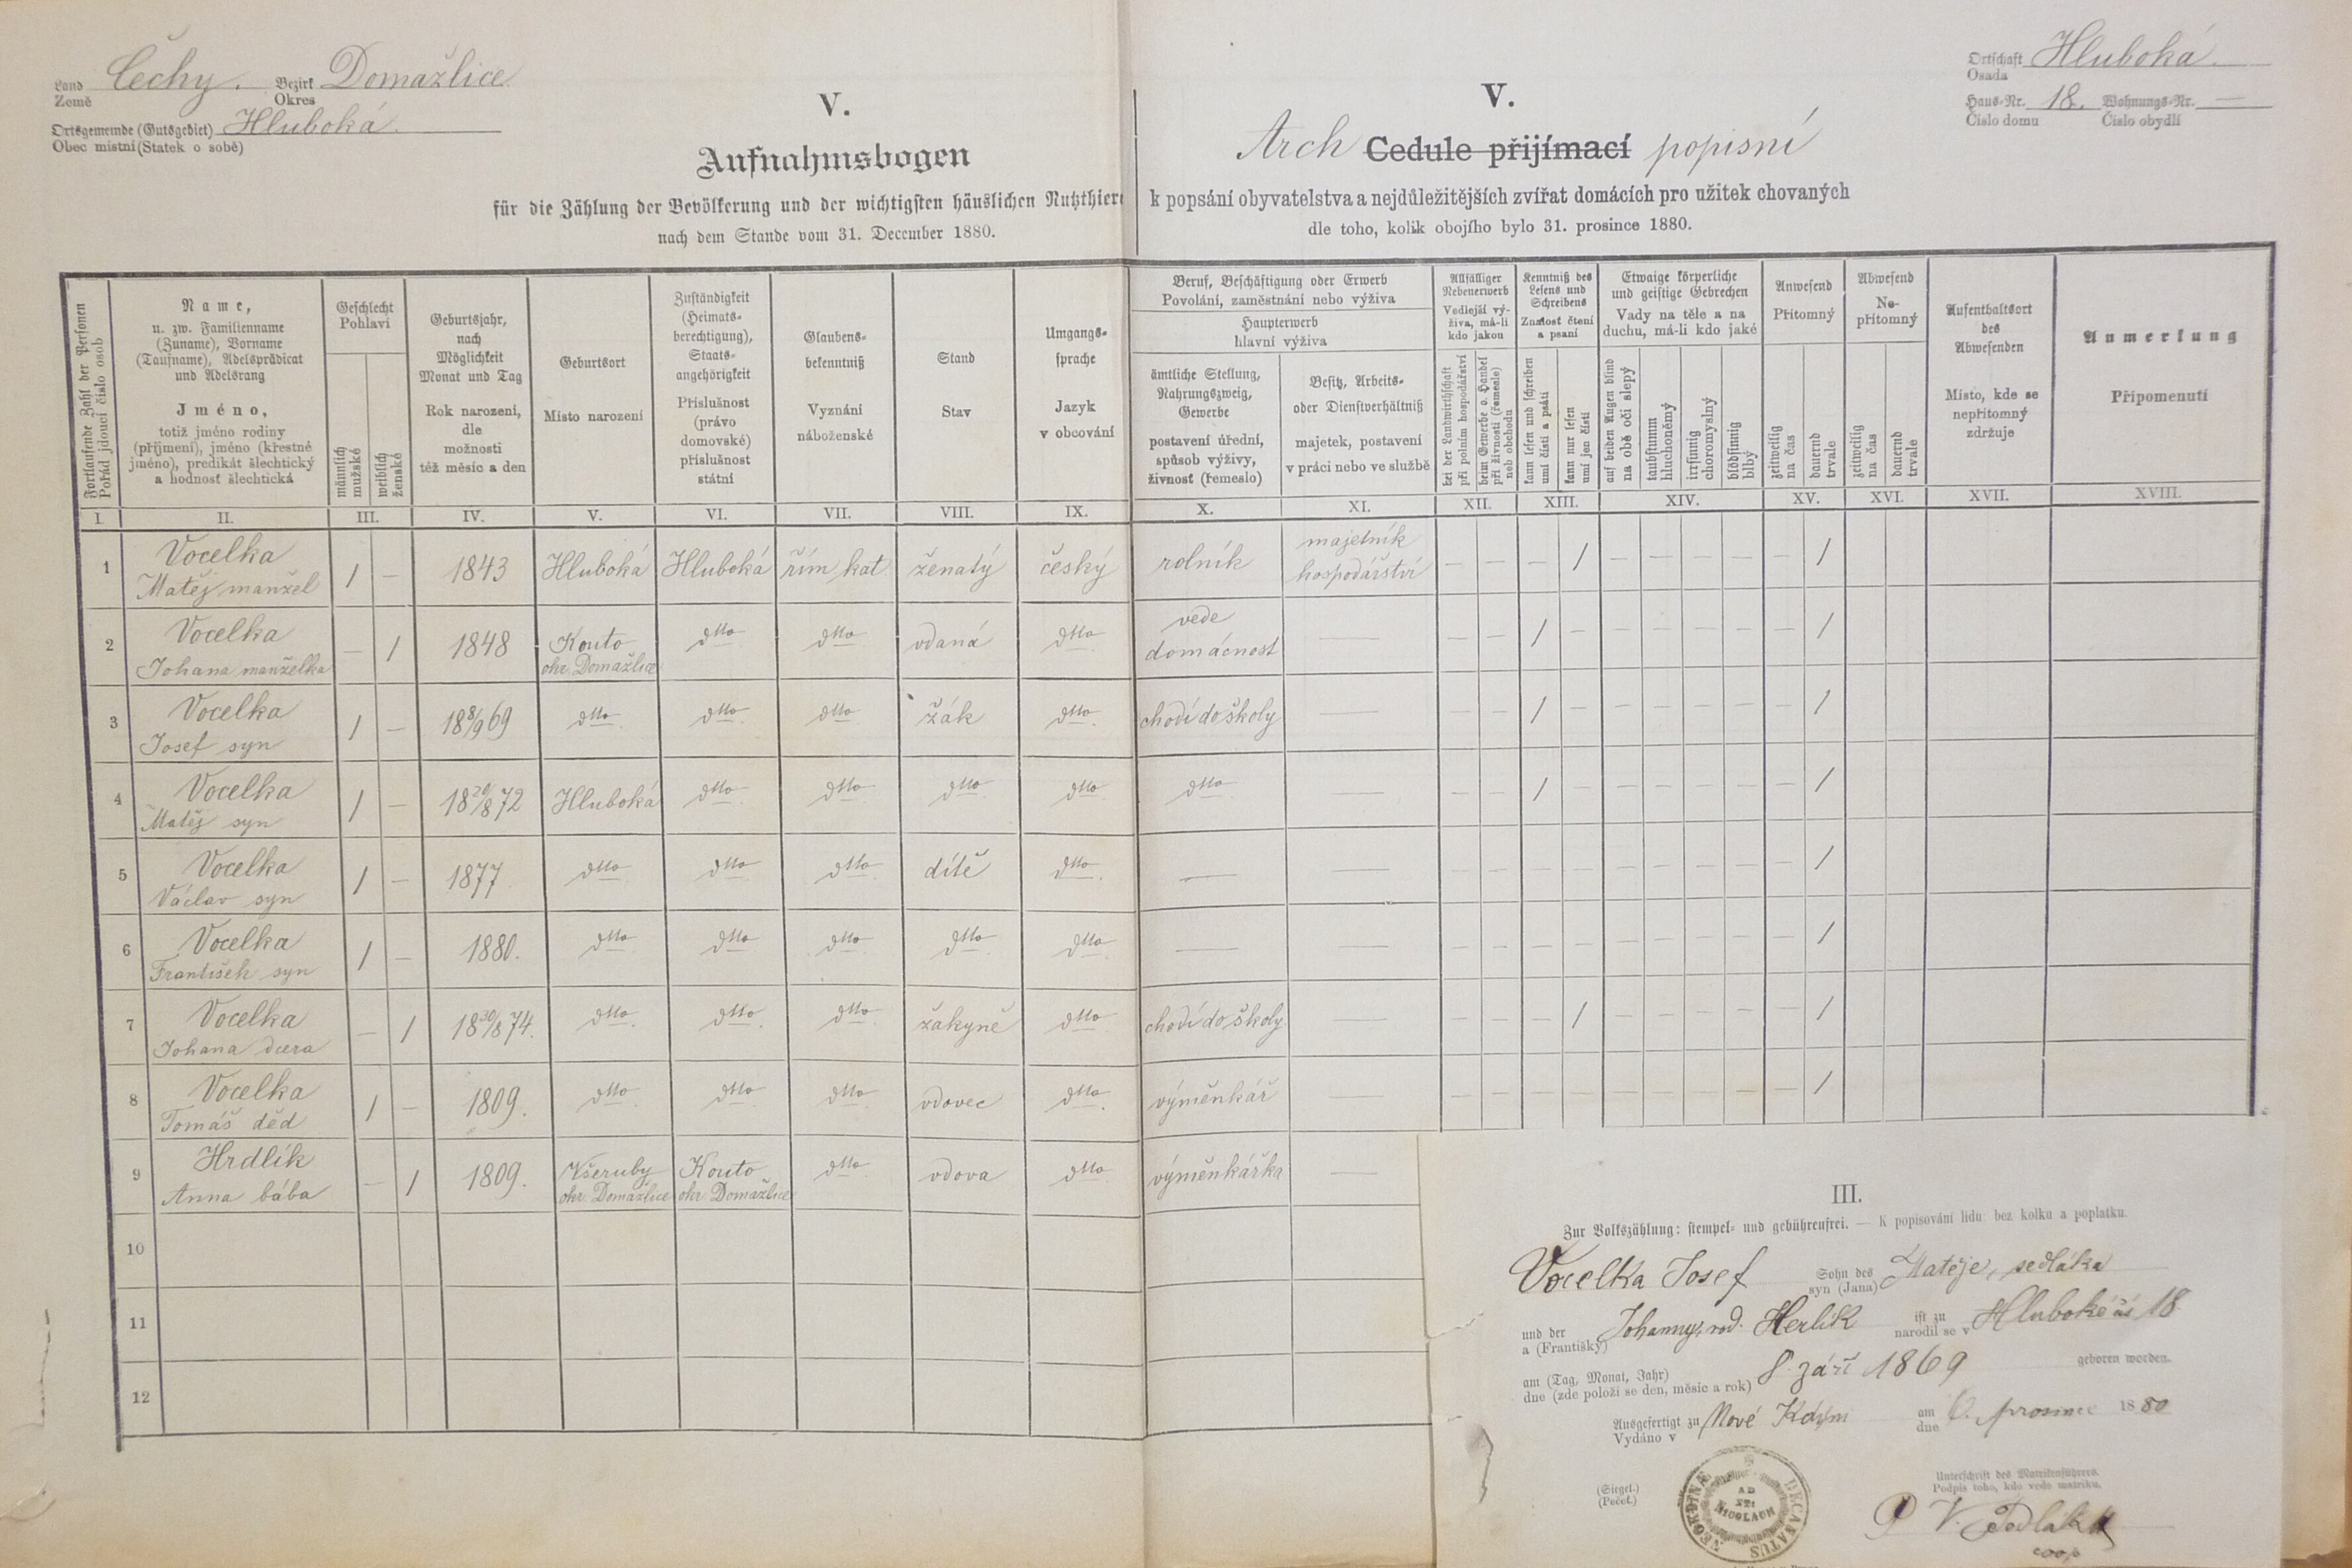 Land
Země
Čechy.
Bezirk
Okres
Domažlice
Ortsgemeinde (Gutsgebiet)
Obec místní (Statek o sobě)
Hluboká.
V.
Aufnahmsbogen
für die Zählung der Bevölkerung und der wichtigsten häuslichen Nutzthiere
nach dem Stande vom 31. December 1880.
Ortschaft
Osada
Hluboká.
Haus-Nr. 18. Wohnungs-Nr. —
Číslo domu Číslo obydlí
V.
Arch Cedule přijímací popisní
k popsání obyvatelstva a nejdůležitějších zvířat domácích pro užitek chovaných
dle toho, kolik obojího bylo 31. prosince 1880.
Fortlaufende Zahl der Personen
Pořád jdoucí číslo osob
Name,
u. zw. Familienname
(Zuname), Vorname
(Taufname), Adelsprädicat
und Adelsrang
Jméno,
totiž jméno rodiny
(příjmení), jméno (křestné
jméno), predikát šlechtický
a hodnost šlechtická
Geschlecht
Pohlaví
männlich
mužské
weiblich
ženské
Geburtsjahr,
nach
Möglichkeit
Monat und Tag
Rok narození,
dle
možnosti
též měsíc a den
Geburtsort
Místo narození
Zuständigkeit
(Heimats-
berechtigung),
Staats-
angehörigkeit
Příslušnost
(právo
domovské)
příslušnost
státní
Glaubens-
bekenntniß
Vyznání
náboženské
Stand
Stav
Umgangs-
sprache
Jazyk
v obcování
Beruf, Beschäftigung oder Erwerb
Povolání, zaměstnání nebo výživa
Haupterwerb
hlavní výživa
ämtliche Stellung,
Nahrungszweig,
Gewerbe
postavení úřední,
spůsob výživy,
živnost (řemeslo)
Besitz, Arbeits-
oder Dienstverhältniß
majetek, postavení
v práci nebo ve službě
Allfälliger
Nebenerwerb
Vedlejší vý-
živa, má-li
kdo jakou
bei der Landwirthschaft
při polním hospodářství
beim Gewerbe o. Handel
při živnosti (řemesle)
neb obchodu
Kenntniß des
Lesens und
Schreibens
Znalost čtení
a psaní
kann lesen und schreiben
umí čísti a psáti
kann nur lesen
umí jen čísti
Etwaige körperliche
und geistige Gebrechen
Vady na těle a na
duchu, má-li kdo jaké
auf beiden Augen blind
na obě oči slepý
taubstumm
hluchoněmý
irrsinnig
choromyslný
blödsinnig
blbý
Anwesend
Přítomný
zeitweilig
na čas
dauernd
trvale
Abwesend
Ne-
přítomný
zeitweilig
na čas
dauernd
trvale
Aufenthaltsort
des
Abwesenden
Místo, kde se
nepřítomný
zdržuje
Anmerkung
Připomenutí
I. II. III. IV. V. VI. VII. VIII. IX. X. XI. XII. XIII. XIV. XV. XVI. XVII. XVIII.
1 Vocelka Matěj manžel / — 1843 Hluboká Hluboká řím. kat. ženatý český rolník majetník hospodářství — — — / — — — — — /
2 Vocelka Johana manželka — / 1848 Kouto okr. Domažlice dtto dtto vdaná dtto vede domácnost — — — / — — — — — — /
3 Vocelka Josef syn / — 18 8/9 69 dtto dtto dtto žák dtto chodí do školy — — — / — — — — — — /
4 Vocelka Matěj syn / — 18 20/8 72 Hluboká dtto dtto dtto dtto dtto — — — / — — — — — — /
5 Vocelka Václav syn / — 1877 dtto dtto dtto dítě dtto — — — — — — — — — — — /
6 Vocelka František syn / — 1880. dtto dtto dtto dtto dtto — — — — — — — — — — — /
7 Vocelka Johana dcera — / 18 30/8 74. dtto dtto dtto žákyně dtto chodí do školy — — — — / — — — — — /
8 Vocelka Tomáš děd / — 1809. dtto dtto dtto vdovec dtto výměnkář — — — — — — — — — — /
9 Hrdlík Anna bába — / 1809. Všeruby okr. Domažlice Kouto okr. Domažlice dtto vdova dtto výměnkářka —
10
11
12
III.
Zur Volkszählung: stempel- und gebührenfrei. — K popisování lidu: bez kolku a poplatku.
Vocelka Josef Sohn des
syn (Jana) Matěje, sedláka
und der
a (Františky) Johanny, rod. Herlík ist zu
narodil se v Hluboké čís 18.
am (Tag, Monat, Jahr)
dne (zde položí se den, měsíc a rok) 8. září 1869 geboren worden.
Ausgefertigt zu
Vydáno v Nové Kdýni am
dne 6. prosince 1880
(Siegel.)
(Pečeť.)
DECANATUS NEOGDINE
AD
STI
NICOLAUM
Unterschrift des Matrikenführers.
Podpis toho, kdo vede matriku.
P V. Sedláček
coop